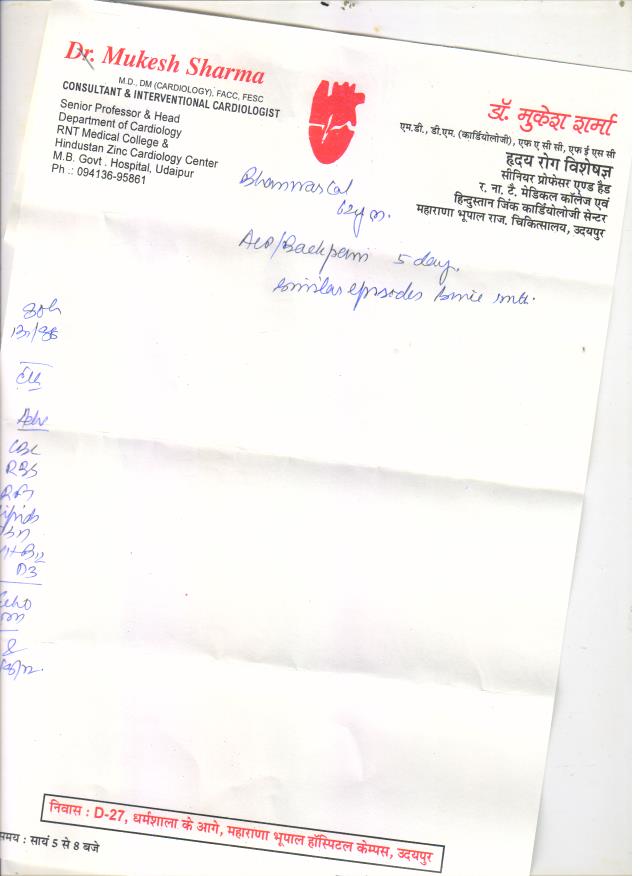 Dr. Mukesh Sharma
M.D., DM (CARDIOLOGY), FACC, FESC
CONSULTANT & INTERVENTIONAL CARDIOLOGIST
Senior Professor & Head
Department of Cardiology
RNT Medical College &
Hindustan Zinc Cardiology Center
M.B. Govt . Hospital, Udaipur
Ph .: 094136-95861
डॉ. मुकेश शर्मा
एम.डी., डी.एम. (कार्डियोलॉजी), एफ ए सी सी, एफ ई एस सी
हृदय रोग विशेषज्ञ
सीनियर प्रोफेसर एण्ड हैड
र. ना. टै. मेडिकल कॉलेज एवं
हिन्दुस्तान जिंक कार्डियोलोजी सेन्टर
महाराणा भूपाल राज. चिकित्सालय, उदयपुर
Bhanwar Lal
/Backpain 5 day.
similar episodes
Adv
CBC
RBS
lipids
D3
Echo
निवास : D-27, धर्मशाला के आगे, महाराणा भूपाल हॉस्पिटल केम्पस, उदयपुर
समय : सायं 5 से 8 बजे